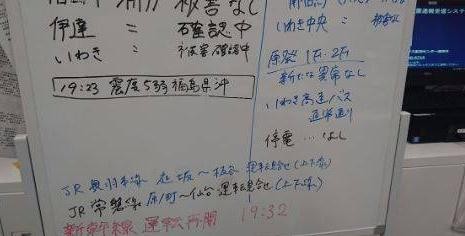 伊達 = 確認中
いわき = 被害確認中
19:23 震度5弱 福島県沖
いわき中央 = 被害なし
原発 1F・2F
新たな異常なし
いわき高速バス
通常通り
停電…なし
JR 奥羽本線 赤坂～板谷 運転見合せ(上下線)
JR 常磐線 原ノ町～仙台 運転見合せ(上下線)
新幹線 運転再開 19:32